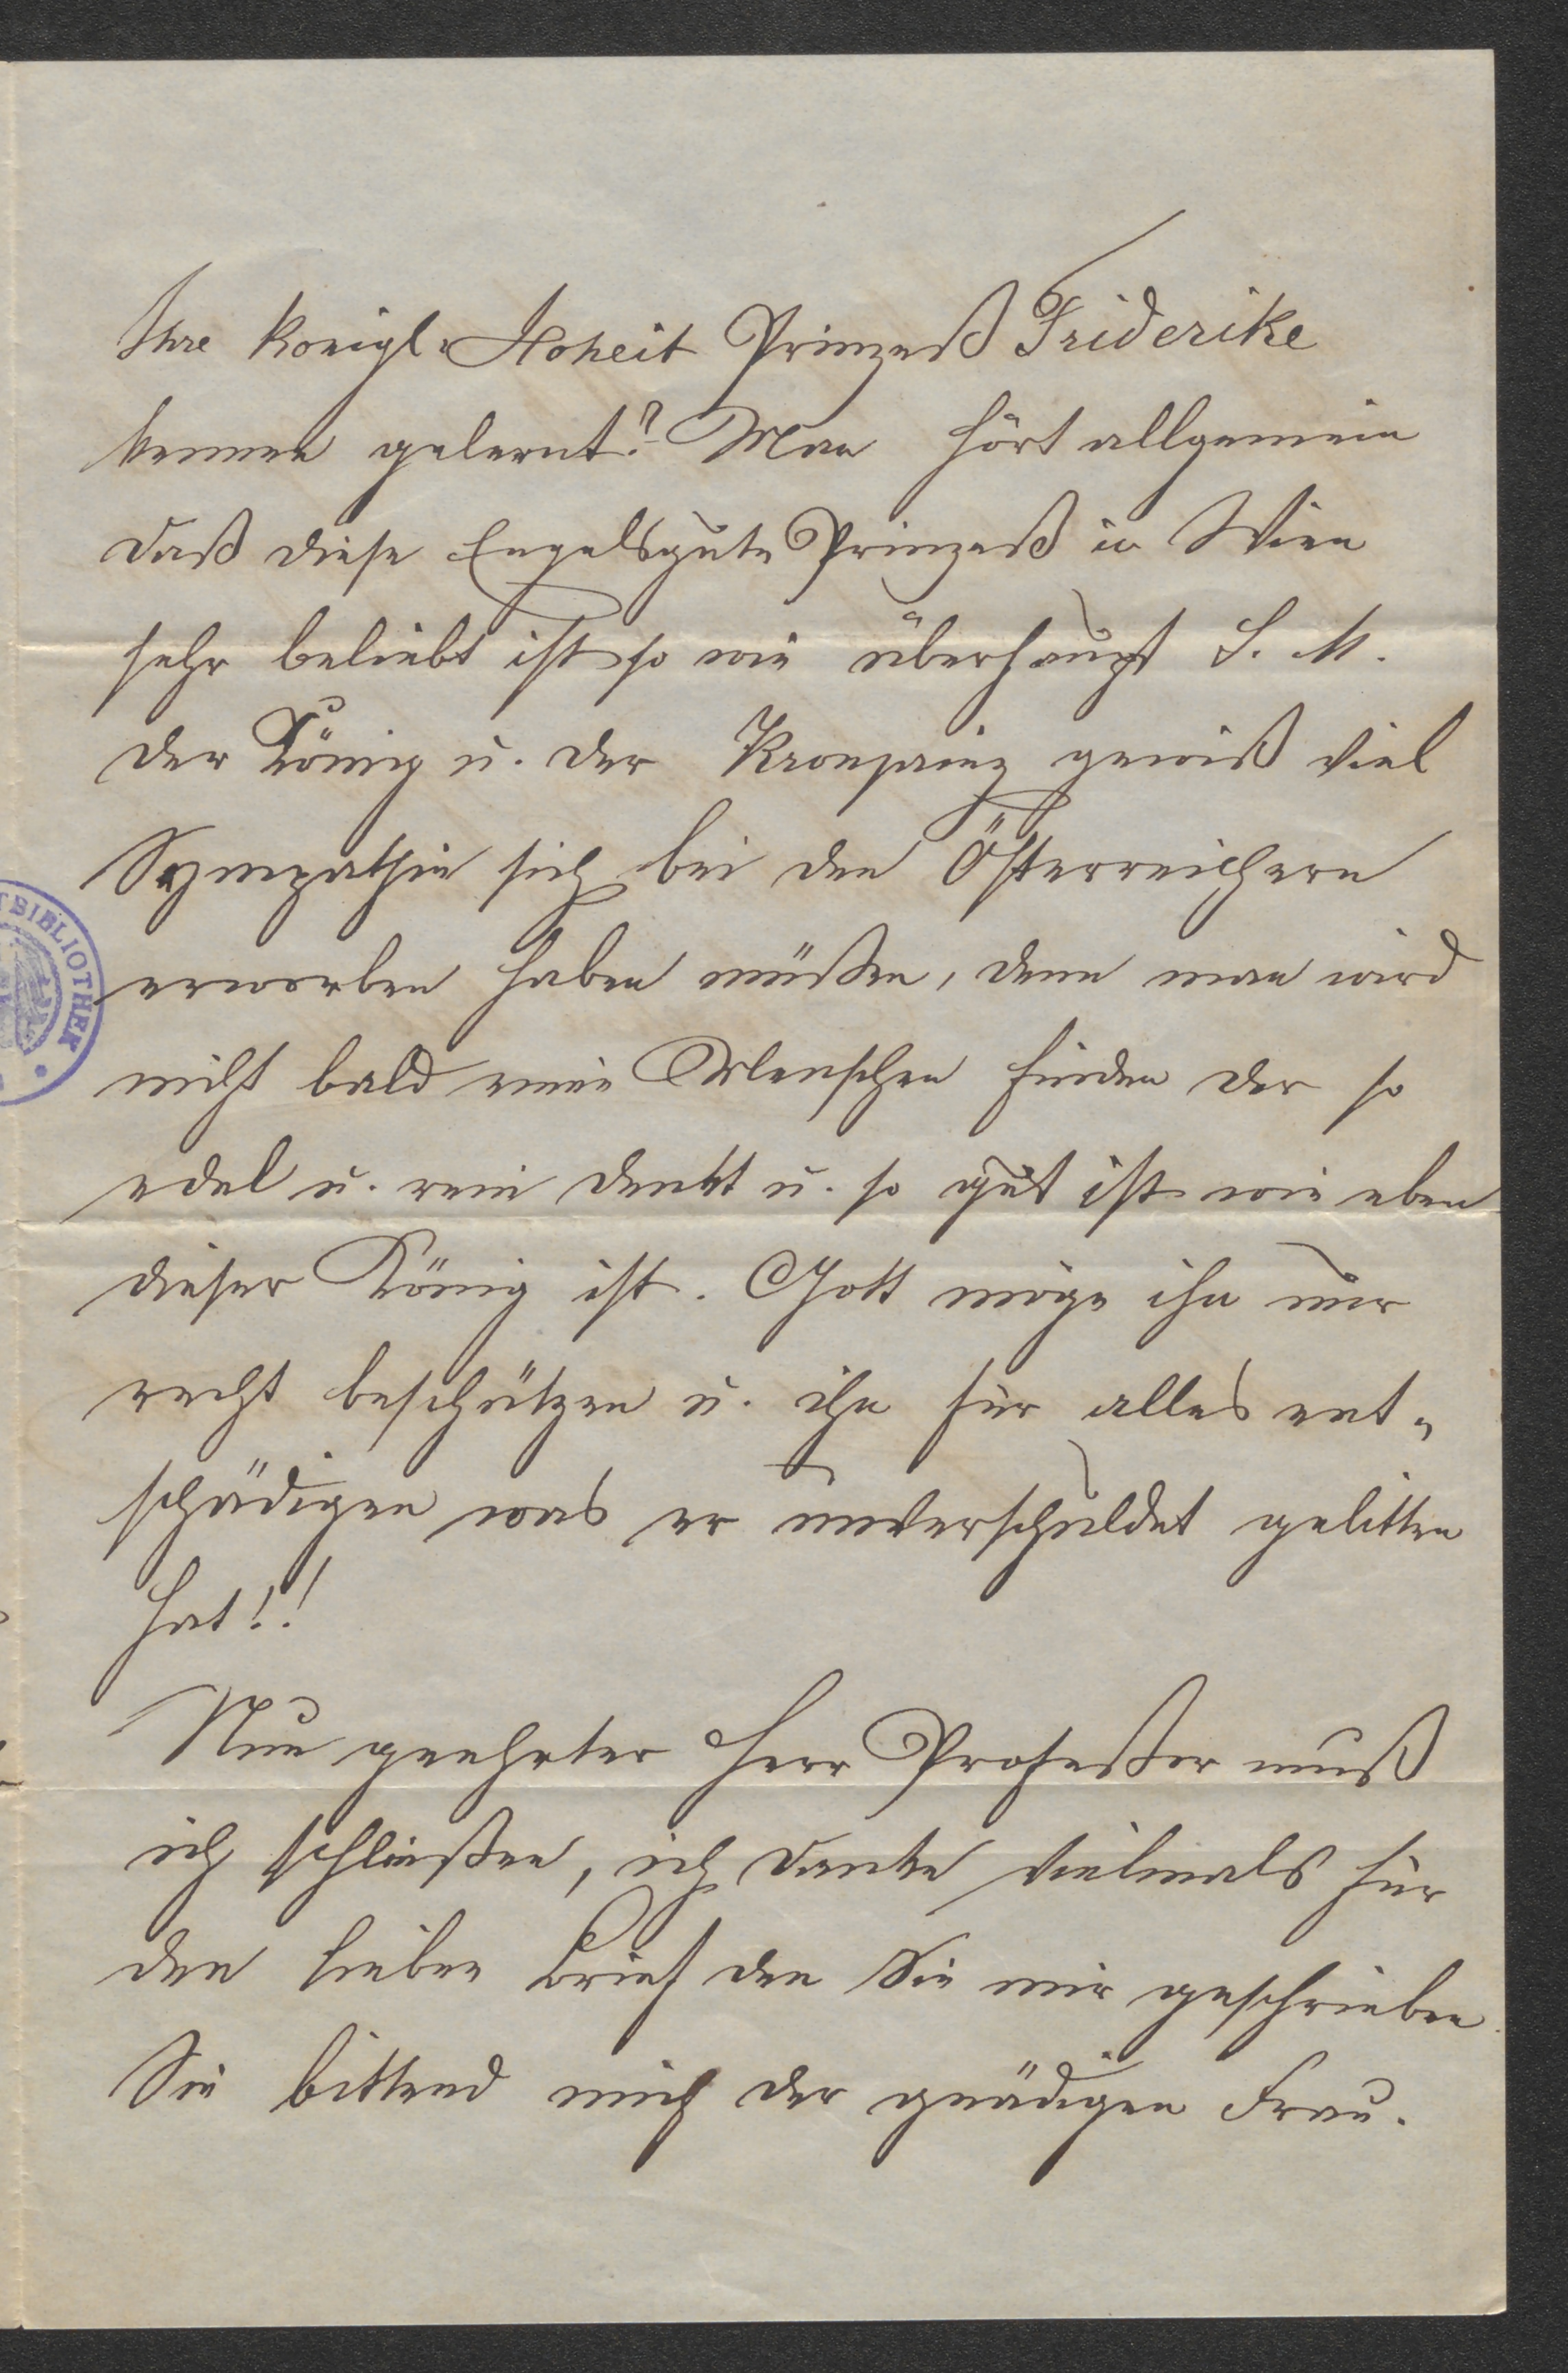 Ihre königl. Hoheit Prinzeß Friderike
kennen gelernt? Man hört allgemein
daß diese Engelsgute Prinzeß in Wien
sehr beliebt ist so wie überhaupt S. M.
der König u. der Kronprinz gewiß viel
Sympathie sich bei den Österreichern
erworben haben müßen, denn man wird
nicht bald einen Menschen finden der so
edel u. rein denkt u. so gut ist wie eben
dieser König ist. Gott möge ihn nur
recht beschützen u. ihn für alles ent-
schädigen was er unverschuldet gelitten
hat!!
Nun geehrter Herr Profeßor muß
ich schließen, ich danke vielmals für
den lieben Brief den Sie mir geschrieben.
Sie bittend mich der gnädigen Frau.
TBIBLIOTHEK